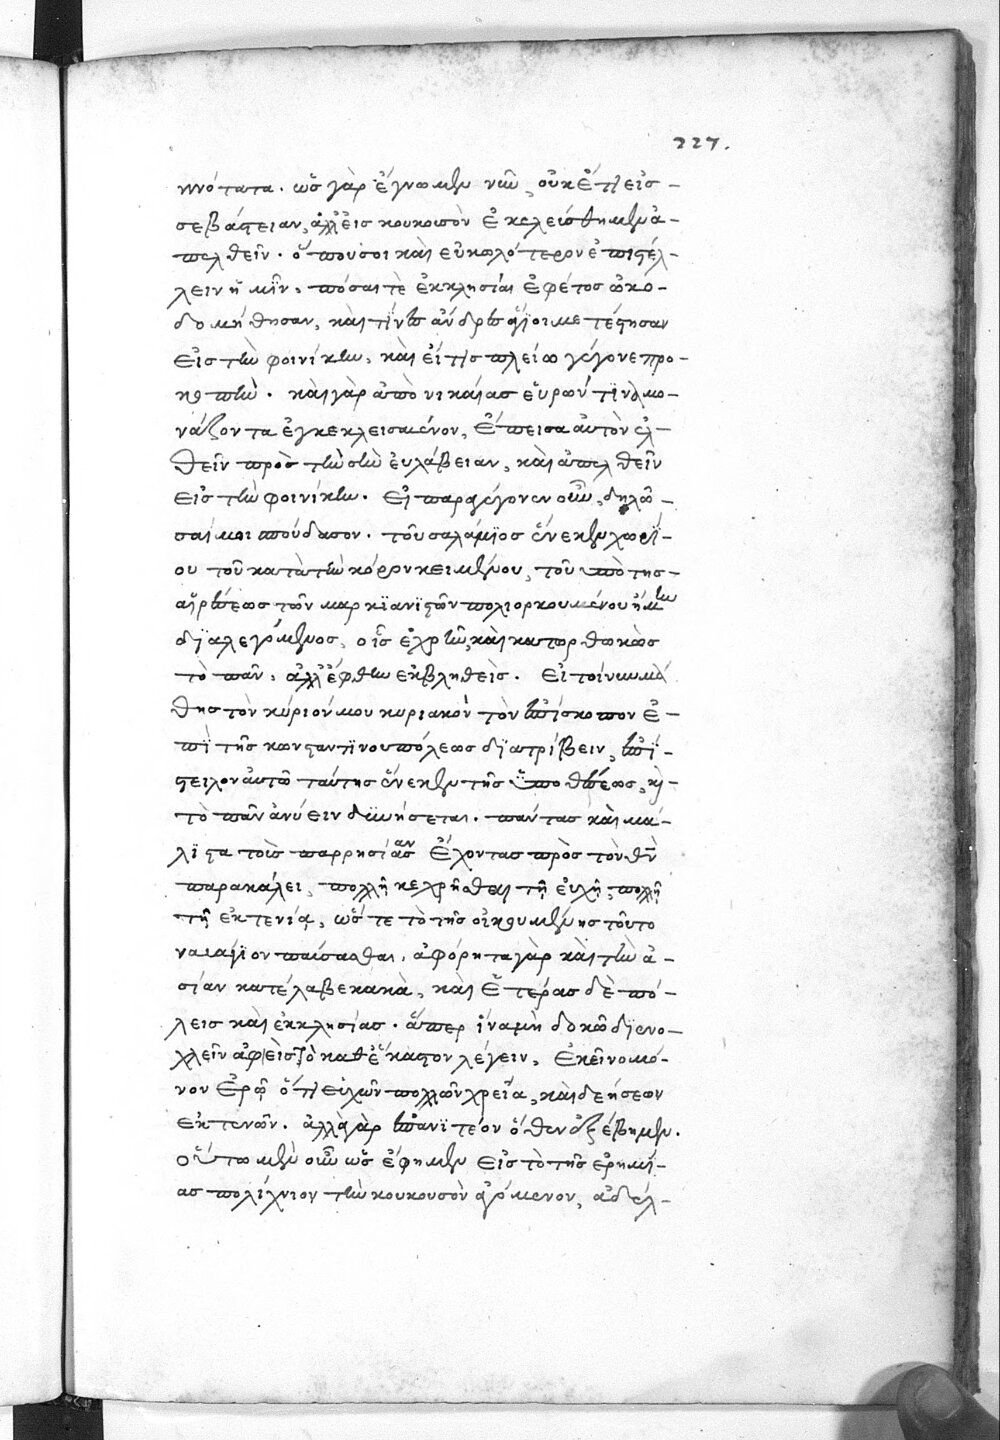 227.
ννότατα. ὡς γὰρ ἔγνωμεν νῦν, οὐκέτι εἰς
σεβάστειαν, ἀλλ' εἰς κουκουσὸν ἐκελεύσθημεν ἀ-
πελθεῖν. ὅπου σοι καὶ εὐκολότερον ἐπιστέλ-
λειν ἡμῖν. πόσαι τὲ ἐκκλησίαι ἐφέτος ὠκο-
δομήθησαν, καὶ τίνες ἄνδρες ἅγιοι μετέστησαν
εἰς τὴν φοινίκην, καὶ εἴ τις πλείω γέγονε προ-
κοπὴ. καὶ γὰρ ἀπὸ νικαίας εὑρών τινα μο-
νάζοντα ἐγκεκλεισμένον, ἔπεισα αὐτὸν ἐλ-
θεῖν πρὸς τὴν σὴν εὐλάβειαν, καὶ ἀπελθεῖν
εἰς τὴν φοινίκην. εἰ παραγέγονεν οὖν, δηλῶ-
σαί μοι σπούδασον. τοῦ σαλάμιος ἕνεκεν χωρί-
ου τοῦ κατὰ τὴν κύπρον κειμένου, τοῦ ὑπὸ τῆς
αἱρέσεως τῶν μαρκιανιστῶν πολιορκουμένου ἤμην
διαλεγόμενος, οἷς ἐχρῆν, καὶ κατωρθωκὼς
τὸ πᾶν, ἀλλ' ἔφθην ἐκβληθεὶς. εἰ τοίνυν μά
θῃς τὸν κύριόν μου κυριακὸν τὸν ἐπίσκοπον ἐ-
πὶ τῆς κωνσταντινουπόλεως διατρίβειν, ἐπί-
στειλον αὐτῷ ταύτης ἕνεκεν τῆς ὑποθέσεως, καὶ
τὸ πᾶν ἀνύειν δυνήσεται. πάντας καὶ μά-
λιστα τοὺς παρρησίαν ἔχοντας πρὸς τὸν θν
παρακάλει, πολλῇ κεχρῆσθαι τῇ εὐχῇ, πολλῇ
τῇ ἐκτενίᾳ, ὥστε τὸ τῆς οἰκουμένης τοῦτο
ναυάγιον παύσασθαι. ἀφόρητα γὰρ καὶ τὴν ἀ-
σίαν κατέλαβε κακὰ, καὶ ἑτέρας δὲ πό-
λεις καὶ ἐκκλησίας. ἅπερ ἵνα μὴ δοκῶ διενο-
χλεῖν ἀφεὶς τὸ καθ' ἕκαστον λέγειν, ἐκεῖνο μό-
νον ἐρῶ ὅτι εὐχῶν πολλῶν χρεία, καὶ δεήσεων
ἐκτενῶν. ἀλλὰ γὰρ ἐπανιτέον ὅθεν ἐξέβημεν.
οὕτω μὲν οὖν ὡς ἔφημεν εἰς τὸ τῆς ἐρημί-
ας πολίχνιον τὴν κουκουσὸν ἀγόμενον, ἀδελ-